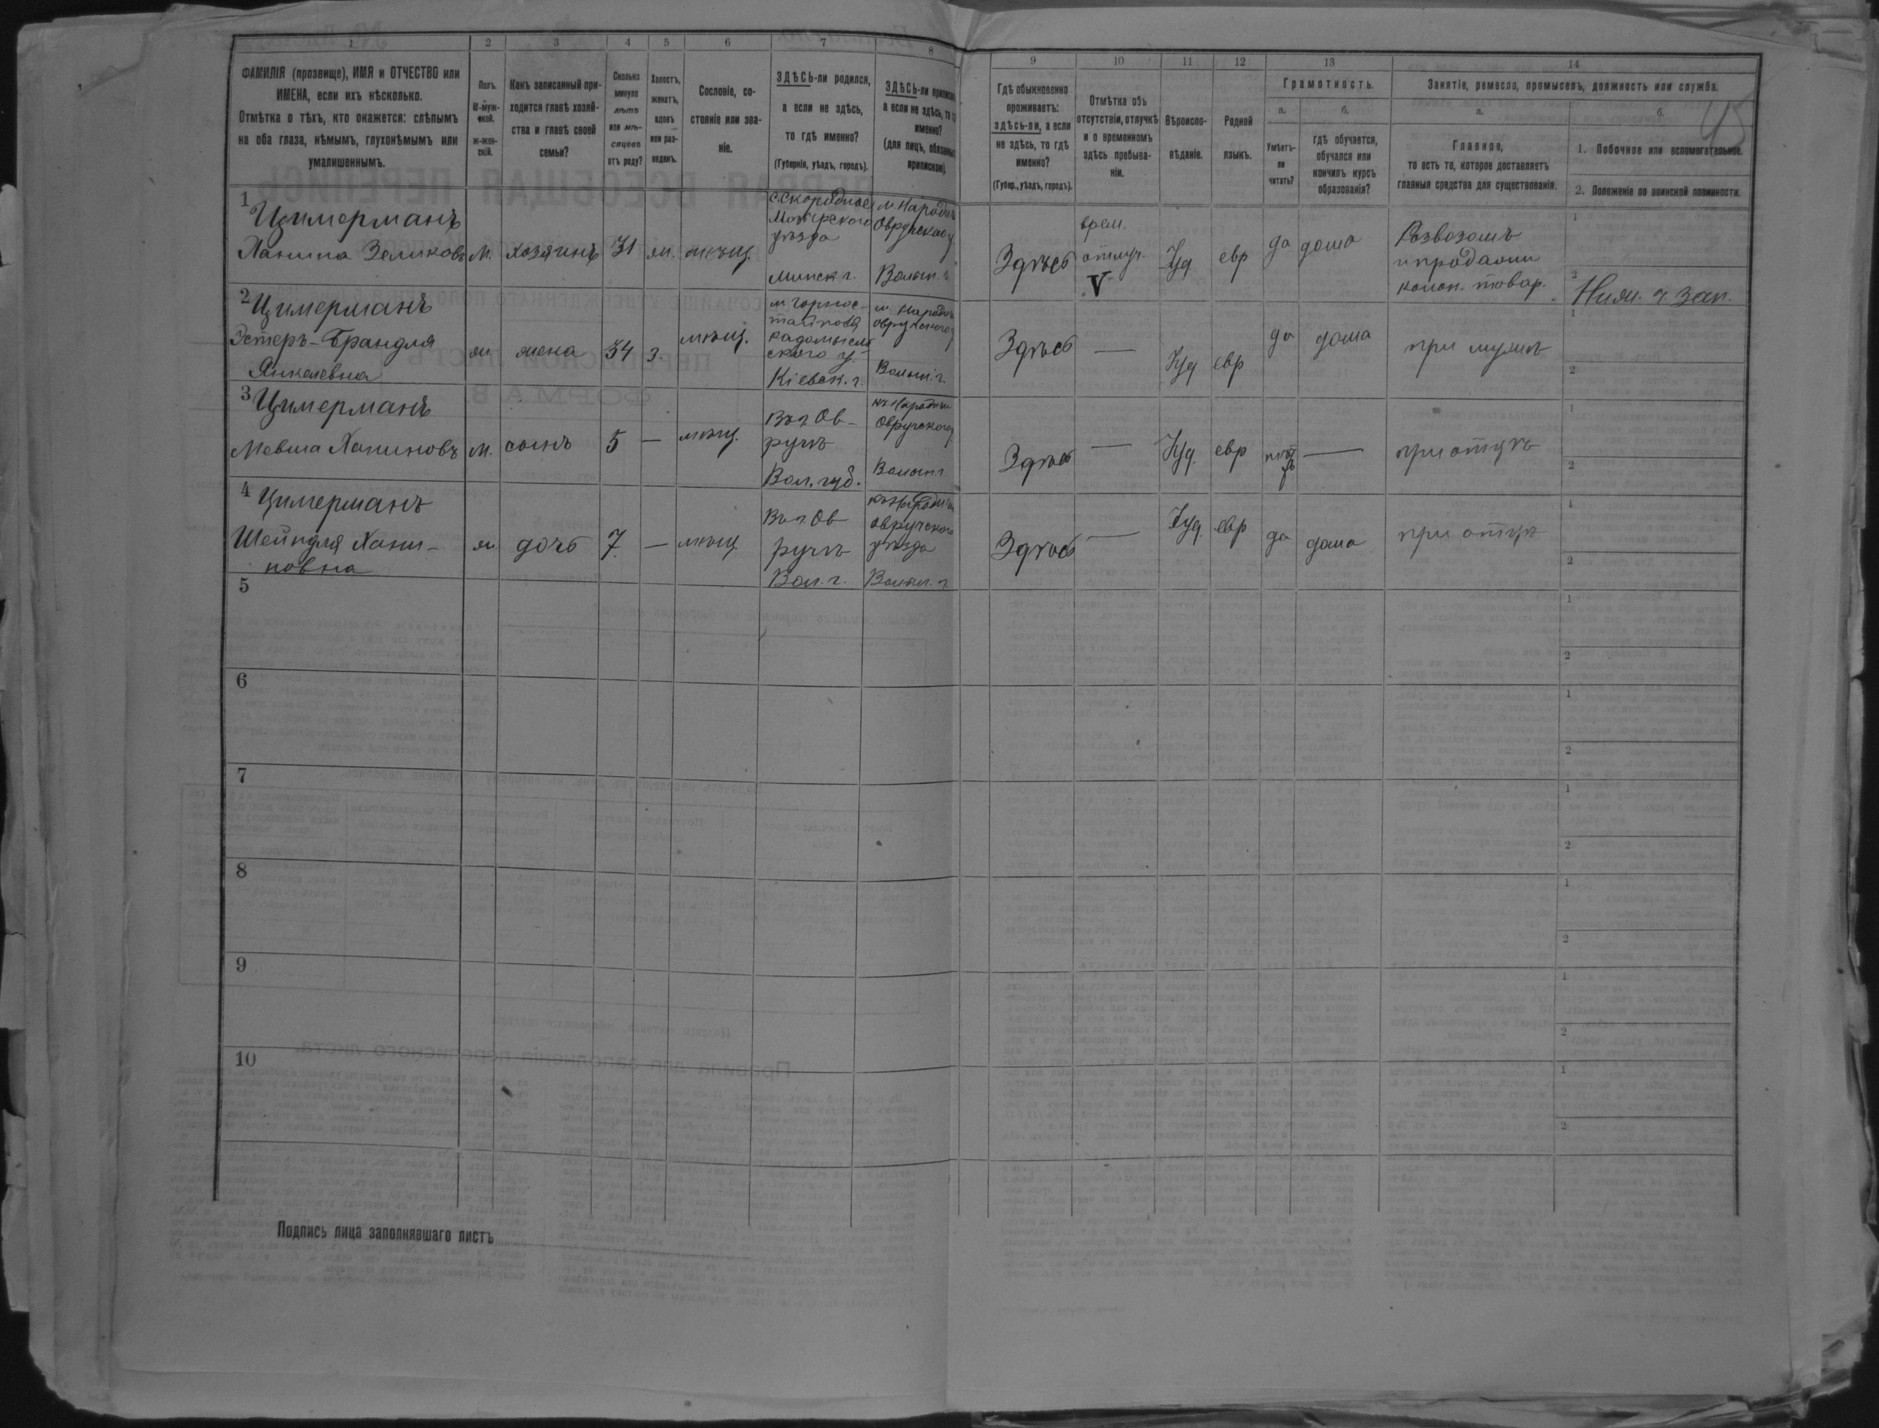 1
2
3
4
5
6
7
8
ФАМИЛІЯ (прозвище), ИМЯ и ОТЧЕСТВО или
ИМЕНА, если ихъ нѣсколько.
Отмѣтка о тѣхъ, кто окажется: слѣпымъ
на оба глаза, нѣмымъ, глухонѣмымъ или
умалишеннымъ.
Полъ.
М-муж-
ской.
Ж-жен-
скій.
Какъ записанный при-
ходится главѣ хозяй-
ства и главѣ своей
семьи?
Сколько
минуло
лѣтъ
или мѣ-
сяцевъ
отъ роду?
Холостъ,
женатъ,
вдовъ
или раз-
веденъ.
Сословіе, со-
стояніе или зва-
ніе.
ЗДѢСЬ-ли родился,
а если не здѣсь,
то гдѣ именно?
(Губернія, уѣздъ, городъ).
ЗДѢСЬ-ли приписанъ,
а если не здѣсь, то гдѣ
именно?
(для лицъ, обязанныхъ
припиской).
9
10
11
12
13
14
Гдѣ обыкновенно
проживаетъ:
здѣсь-ли, а если
не здѣсь, то гдѣ
именно?
(Губер., уѣздъ, городъ).
Отмѣтка объ
отсутствіи, отлучкѣ
и о временномъ
здѣсь пребыва-
ніи.
Вѣроиспо-
вѣданіе.
Родной
языкъ.
Грамотность.
а.
б.
Умѣетъ-
ли
читать?
гдѣ обучается,
обучался или
кончилъ курсъ
образованія?
Занятіе, ремесло, промыселъ, должность или служба.
а.
б.
Главное,
то есть то, которое доставляетъ
главныя средства для существованія.
1. Побочное или вспомогательное.
2. Положеніе по воинской повинности.
1
Цимерманъ
Ханина Зеликовъ
М.
хозяинъ
31
ж.
мѣщ.
с. Скородное
Мозырскаго
уѣзда
Минск. г.
м Народичи
Овручскаго у
Волын. г.
Здѣсь
врем.
отлуч.
V
Іуд
евр
да
дома
Развозомъ
и продажи
колон. товар.
1
2
2
Цимерманъ
Эстеръ-Брандля
Янкелевна
ж
жена
34
з.
мѣщ.
м Горнос-
тайполь
Радомысль
скаго у-
Кіевск. г.
м Народичи
Овручскаго у
Волын. г.
Здѣсь
—
Іуд
евр
да
дома
при мужѣ
1
2
3
Цимерманъ
Мовша Ханиновъ
М.
сынъ
5
—
мѣщ.
Въ г Ов-
ручъ
Вол. губ.
Овручскаго у
Волын г
Здѣсь
—
Іуд.
евр
нѣтъ
—
при отцѣ
1
2
4
Цимерманъ
Шейндля Хани-
новна
ж
дочь
7
—
мѣщ
Въ г Ов
ручъ
Вол. г.
Овручскаго
уѣзда
Волын. г
Здѣсь
—
Іуд.
евр
да
дома
при отцѣ
1
2
5
1
2
6
1
2
7
1
2
8
1
2
9
1
2
10
1
2
Подпись лица заполнявшаго листъ